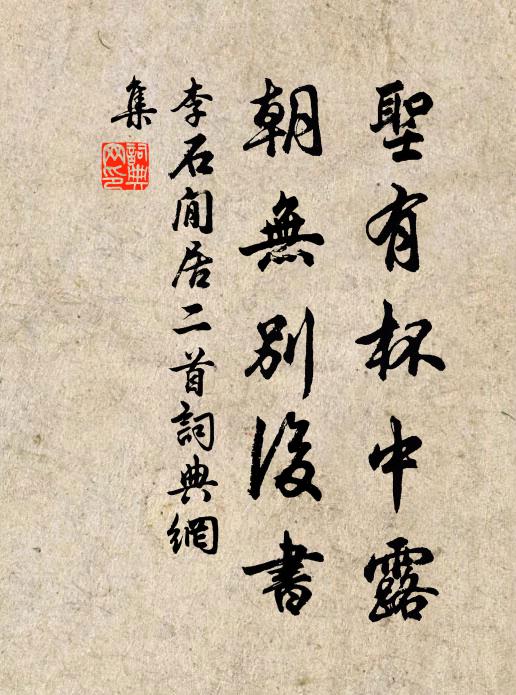 聖有杯中露
朝無別後書
李石閒居二首詞典網
集
詞典
網印